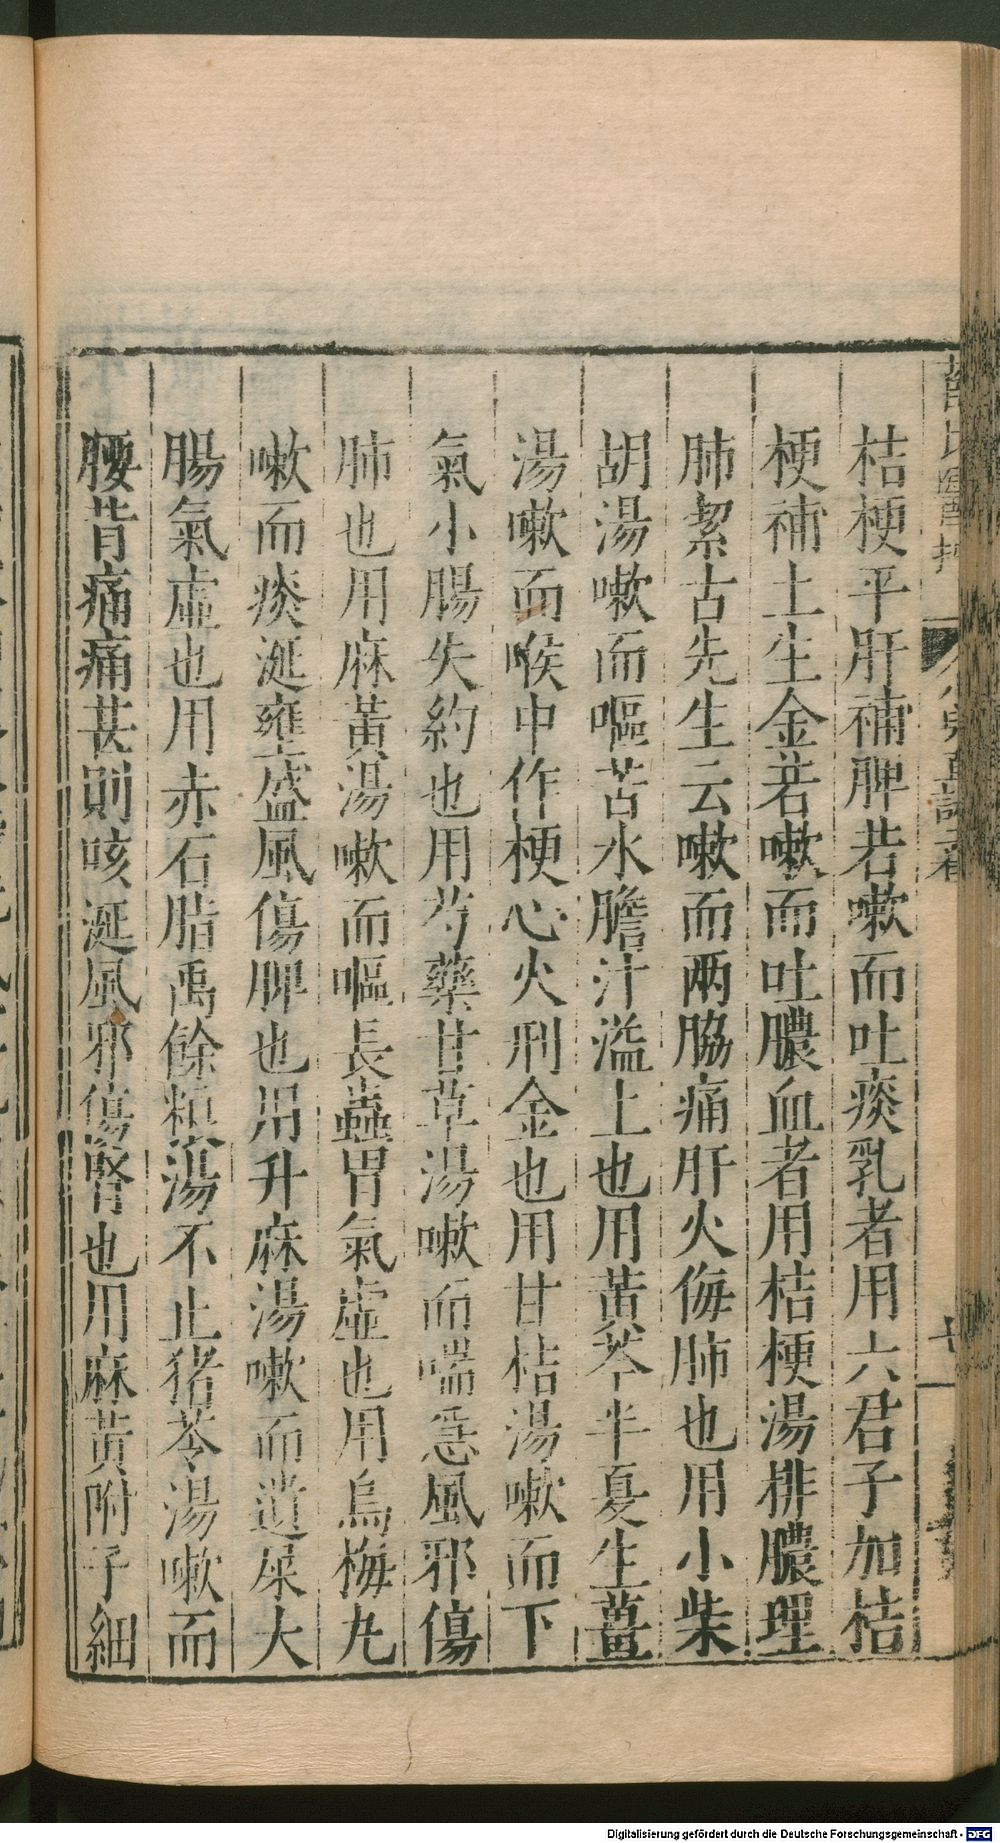 桔梗平肝補脾若嗽而吐痰乳者用六君子加桔
梗補土生金若嗽而吐膿血者用桔梗湯排膿理
肺絜古先生云嗽而兩脇痛肝火侮肺也用小柴
胡湯嗽而嘔苦水膽汁溢上也用黃芩半夏生薑
湯嗽而喉中作梗心火刑金也用甘桔湯嗽而下
氣小腸失約也用芍藥甘草湯嗽而喘急風邪傷
肺也用麻黃湯嗽而嘔長蟲胃氣虛也用烏梅丸
嗽而痰涎壅盛風傷脾也用升麻湯嗽而遺屎大
腸氣虛也用赤石脂禹餘糧湯不止猪苓湯嗽而
腰背痛痛甚則咳涎風邪傷腎也用麻黃附子細
Digitalisierung gefördert durch die Deutsche Forschungsgemeinschaft - DFG